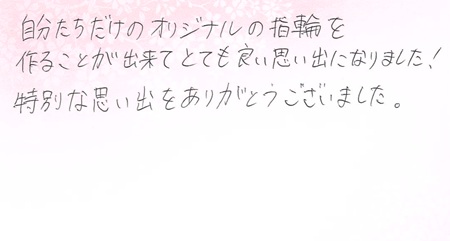 自分たちだけのオリジナルの指輪を
作ることが出来てとても良い思い出になりました!
特別な思い出をありがとうございました。